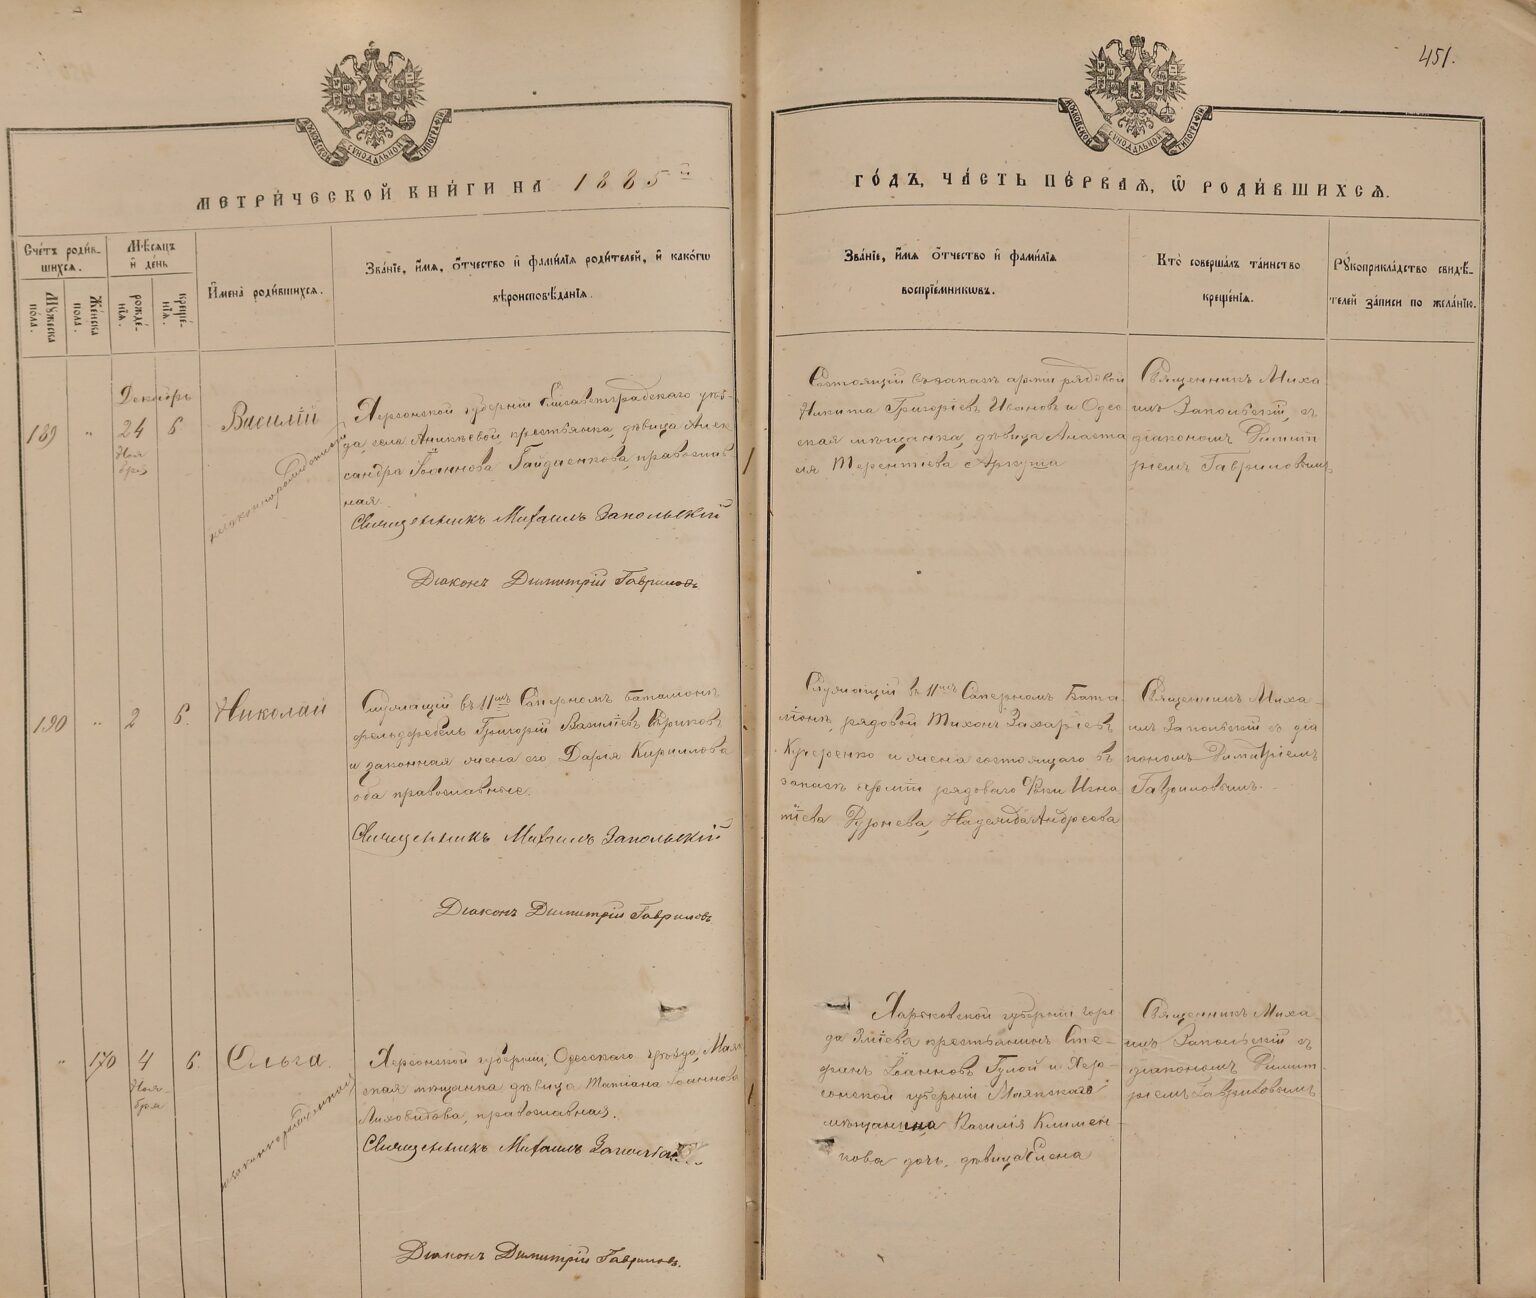 451.
МОСКОВСКОЙ СУНОДАЛЬНОЙ ТИПОГРАФІИ
МОСКОВСКОЙ СУНОДАЛЬНОЙ ТИПОГРАФІИ
МЕТРИ́ЧЕСКОЙ КНИ́ГИ НА 1885й
ГО́ДЪ, ЧА́СТЬ ПЕ́РВАЯ, Ѡ҆ РОДИ́ВШИХСЯ.
Сче́тъ роди́в-
шихся.
Мꙋ́жеска
пола.
Же́нска
пола.
Мѣ́сяцъ
и҆ де́нь
рожде́-
нїя.
креще́-
нїя.
И҆мена̀ роди́вшихся.
Зва́нїе, и҆́мя, ѻ҆́тчество и҆ фами́лїя роди́телей, и҆ како́гѡ
вѣроисповѣ́данїя.
Зва́нїе, и҆́мя ѻ҆́тчество и҆ фами́лїя
воспрїе́мникѡвъ.
Кто̀ соверша́лъ та́инство
креще́нїя.
Рꙋкоприкла́дство свидѣ́-
телей за́писи по жела́нїю.
Декабрь
189 " 24 6
Ноя
бря
Василій
незаконнорожденный
Херсонской губерніи Елисаветградскаго уѣз-
да, села Аникѣевой, крестьянка, дѣвица Алек
сандра Іоаннова Гайдаенкова, православ-
ная.
Священникъ Михаилъ Запольскій
Діаконъ Димитрій Гавриловъ
Состоящій въ запасѣ арміи рядовой
Никита Григоріевъ Ивановъ и Одес
ская мѣщанка, дѣвица Анаста
сія Терентіева
Священникъ Миха
илъ Запольскій, съ
діакономъ Димит
ріемъ Гавриловымъ
190 " 2 6.
Николай
Служащій въ 11мъ Саперномъ баталіонѣ
фельдфебель Григорій Василіевъ
и законная жена его Дарія Кириллова
оба православные.
Священникъ Михаилъ Запольскій
Діаконъ Димитрій Гавриловъ
Служащій въ 11мъ Саперномъ Бата
ліонѣ, рядовой Тихонъ Захаріевъ
Кучеренко и жена состоящаго въ
запасѣ арміи рядоваго Игна
тіева Надежда Андреева
Священникъ Миха-
илъ Запольскій съ діа
кономъ Димитріемъ
Гавриловымъ.
" 170 4 6.
Ноя-
бря
Ольга.
незаконнорожденная
Херсонской губерніи, Одесскаго уѣзда, Маяк
ская мѣщанка дѣвица Татіана Іоаннова
Лиховидова, православная.
Священникъ Михаилъ
Діаконъ Димитрій Гавриловъ.
Харьковской губерніи горо
да Зміева крестьянинъ Сте-
фанъ Іоанновъ Гулой и Хер-
сонской губерніи Маякскаго
мѣщанина Василія Климен
кова дочь, дѣвица Елена
Священникъ Миха
илъ Запольскій съ
діакономъ Димит
ріемъ Гавриловымъ